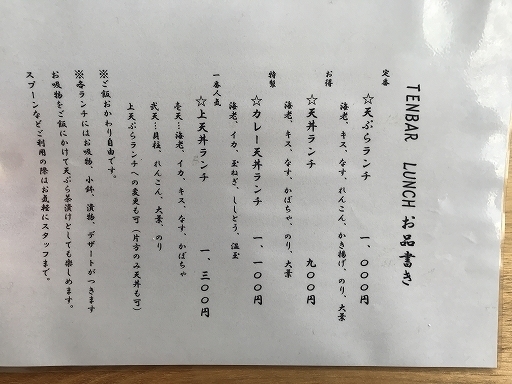 TENBAR LUNCH お品書き
定番
☆天ぷらランチ 一、〇〇〇円
海老、キス、なす、れんこん、かき揚げ、のり、大葉
お得
☆天丼ランチ 九〇〇円
海老、キス、なす、かぼちゃ、のり、大葉
特製
☆カレー天丼ランチ 一、一〇〇円
海老、イカ、玉ねぎ、ししとう、温玉
一番人気
☆上天丼ランチ 一、三〇〇円
壱天…海老、イカ、キス、なす、かぼちゃ
弐天…貝柱、れんこん、大葉、のり
上天ぷらランチへの変更も可(片方のみ天丼も可)
※ご飯おかわり自由です。
※各ランチにはお吸物、小鉢、漬物、デザートがつきます
お吸物をご飯にかけて天ぷら茶漬けとしても楽しめます。
スプーンなどご利用の際はお気軽にスタッフまで。